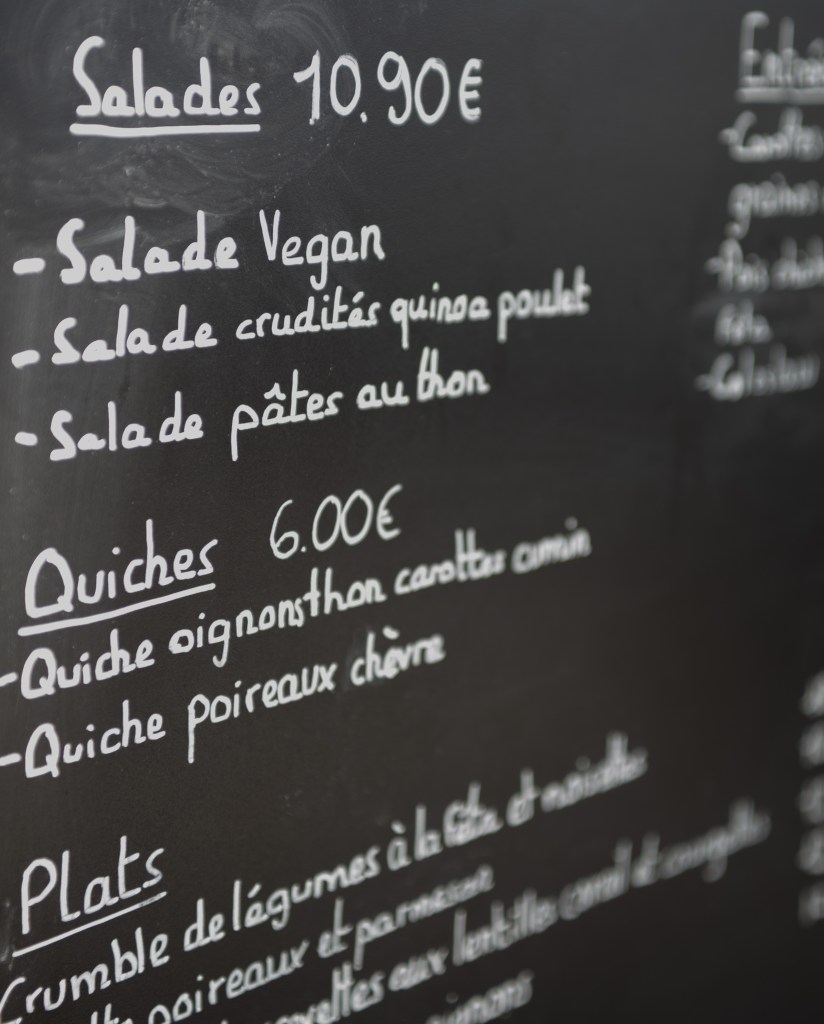 Salades 10.90€
- Salade Vegan
- Salade crudités quinoa poulet
- Salade pâtes au thon
Quiches 6.00€
- Quiche oignons thon carottes cumin
- Quiche poireaux chèvre
Plats
Crumble de légumes à la féta et noisettes
poireaux et parmesan
aux lentilles corail et courgettes
oignons
Entrées
- Carottes
graines
- Pois
féta